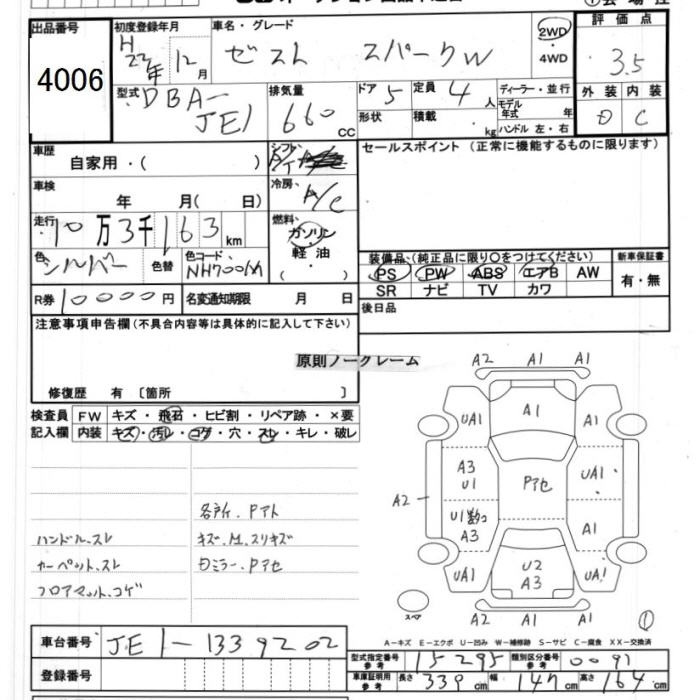 出品番号
4006
初度登録年月
H 22年 12月
車名・グレード
ゼスト スパークW
2WD
・
4WD
評価点
3.5
外装 内装
D C
型式
DBA-
JE1
排気量
660 CC
ドア 5
形状
定員 4 人
積載 kg
ディーラー・並行
モデル年式 年
ハンドル 左・右
車歴
自家用・( )
シフト
冷房 A/C
車検
年 月( 日)
走行
10万3千163km
燃料
ガソリン
軽油
( ・ )
色
シルバー
色替
色コード
NH700M
R券 10000円
名変通知期限 月 日
セールスポイント (正常に機能するものに限ります)
装備品(純正品に限り○をつけてください)
PS PW ABS エアB AW
SR ナビ TV カワ
新車保証書
有・無
後日品
注意事項申告欄(不具合内容等は具体的に記入して下さい)
原則ノークレーム
修復歴 有 〔箇所 〕
検査員
記入欄
FW キズ・飛石・ヒビ割・リペア跡・×要
内装 キズ・汚レ・コゲ・穴・スレ・キレ・破レ
ハンドル.スレ
カーペット.スレ
フロアマット.コゲ
各所.Pアト
キズ.M.スリキズ
A2 A1 A1
UA1 A1 A1
A3
U1
Pアセ
UA1
A2
A3
A1
UA1
U2
A3
UA1
スペア
A2 A1 A1
A-キズ E-エクボ U-凹み W-補修跡 S-サビ C-腐食 XX-交換済
車台番号 JE1-1339202
登録番号
型式指定番号 参考 15295
類別区分番号 参考 0091
車庫証明用 参考 長さ 339cm 幅 147cm 高さ 164cm